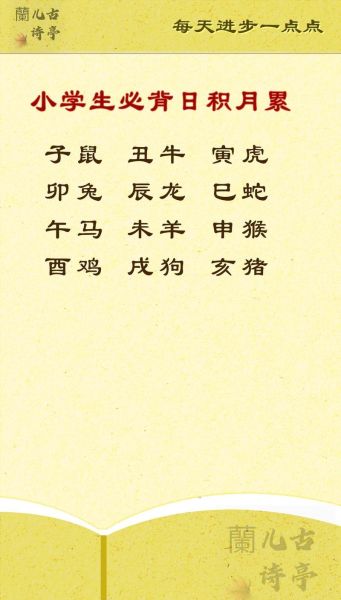 蘭儿古
诗亭
每天进步一点点
小学生必背日积月累
子鼠 丑牛 寅虎
卯兔 辰龙 巳蛇
午马 未羊 申猴
酉鸡 戌狗 亥猪
蘭儿古
诗亭